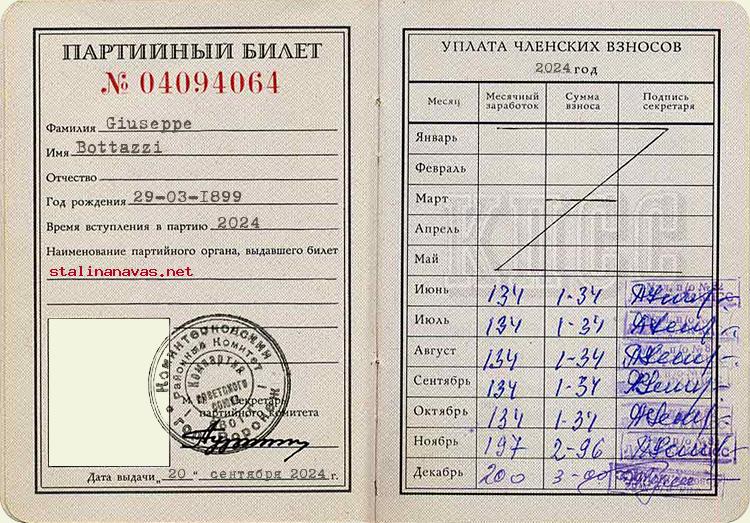 ПАРТИЙНЫЙ БИЛЕТ
№ 04094064
Фамилия Giuseppe
Имя Bottazzi
Отчество
Год рождения 29-03-1899
Время вступления в партию 2024
Наименование партийного органа, выдавшего билет
stalinanavas.net
Коминтерновский
Районный Комитет
Компартия
Советского
Союза
М. П. Секретарь
партийного комитета
Дата выдачи „20" сентября 2024 г.
УПЛАТА ЧЛЕНСКИХ ВЗНОСОВ
2024 год
Месяц Месячный заработок Сумма взноса Подпись секретаря
КПСС
Январь
Февраль
Март
Апрель
Май
Июнь 134 1-34
Июль 134 1-34
Август 134 1-34
Сентябрь 134 1-34
Октябрь 134 1-34
Ноябрь 197 2-96
Декабрь 200 3-00